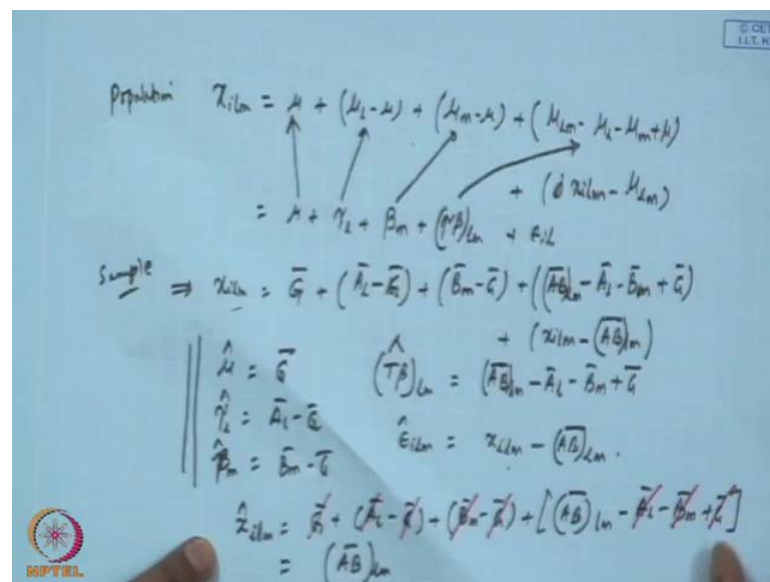 © CET
I.I.T. K
Population x_{ilm} = μ + (μ_l - μ) + (μ_m - μ) + (μ_{lm} - μ_l - μ_m + μ)
+ (x_{ilm} - μ_{lm})
= μ + τ_l + β_m + (τβ)_{lm} + ε_{il}
Sample ⇒ x_{ilm} = G̅ + (A̅_l - G̅) + (B̅_m - G̅) + ((A̅B̅)_{lm} - A̅_l - B̅_m + G̅)
+ (x_{ilm} - (A̅B̅)_{lm})
μ̂ = G̅ (τβ)^_{lm} = (A̅B̅)_{lm} - A̅_l - B̅_m + G̅
τ̂_l = A̅_l - G̅ ε̂_{ilm} = x_{ilm} - (A̅B̅)_{lm}.
β̂_m = B̅_m - G̅
x̂_{ilm} = G̅ + (A̅_l - G̅) + (B̅_m - G̅) + [(A̅B̅)_{lm} - A̅_l - B̅_m + G̅]
= (A̅B̅)_{lm}
NPTEL